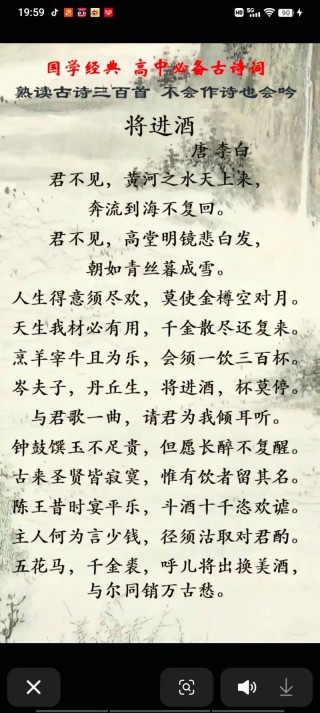 19:59
HD 5G 90
国学经典 高中必备古诗词
熟读古诗三百首 不会作诗也会吟
将进酒
唐 李白
君不见，黄河之水天上来，
奔流到海不复回。
君不见，高堂明镜悲白发，
朝如青丝暮成雪。
人生得意须尽欢，莫使金樽空对月。
天生我材必有用，千金散尽还复来。
烹羊宰牛且为乐，会须一饮三百杯。
岑夫子，丹丘生，将进酒，杯莫停。
与君歌一曲，请君为我倾耳听。
钟鼓馔玉不足贵，但愿长醉不复醒。
古来圣贤皆寂寞，惟有饮者留其名。
陈王昔时宴平乐，斗酒十千恣欢谑。
主人何为言少钱，径须沽取对君酌。
五花马，千金裘，呼儿将出换美酒，
与尔同销万古愁。